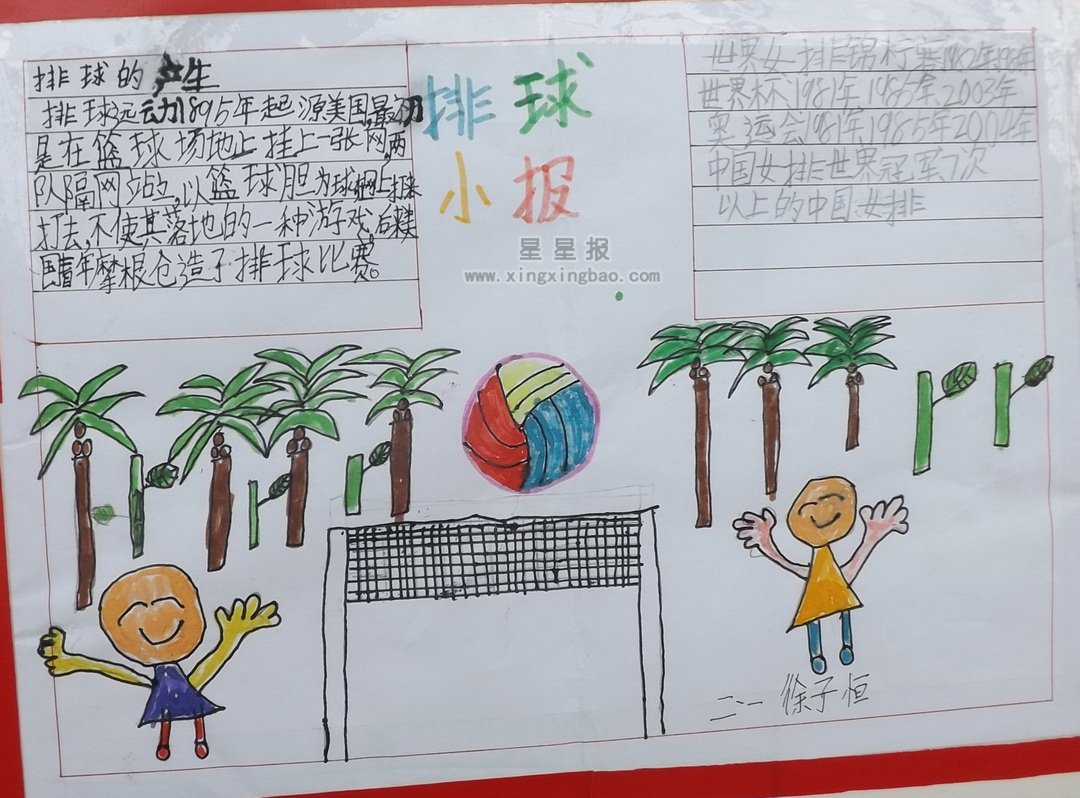 排球的产生
排球运动1895年起源美国,最初
是在篮球场地上挂上一张网,两
队隔网站立,以篮球胆为球网上打来
打去,不使其落地的一种游戏,后美
国青年摩根创造了排球比赛。
排球
小报
星星报
www.xingxingbao.com
世界女排锦标赛1982年1986年
世界杯1981年1985年2003年
奥运会1981年1985年2004年
中国女排世界冠军7次
以上的中国女排
二·一 徐子恒